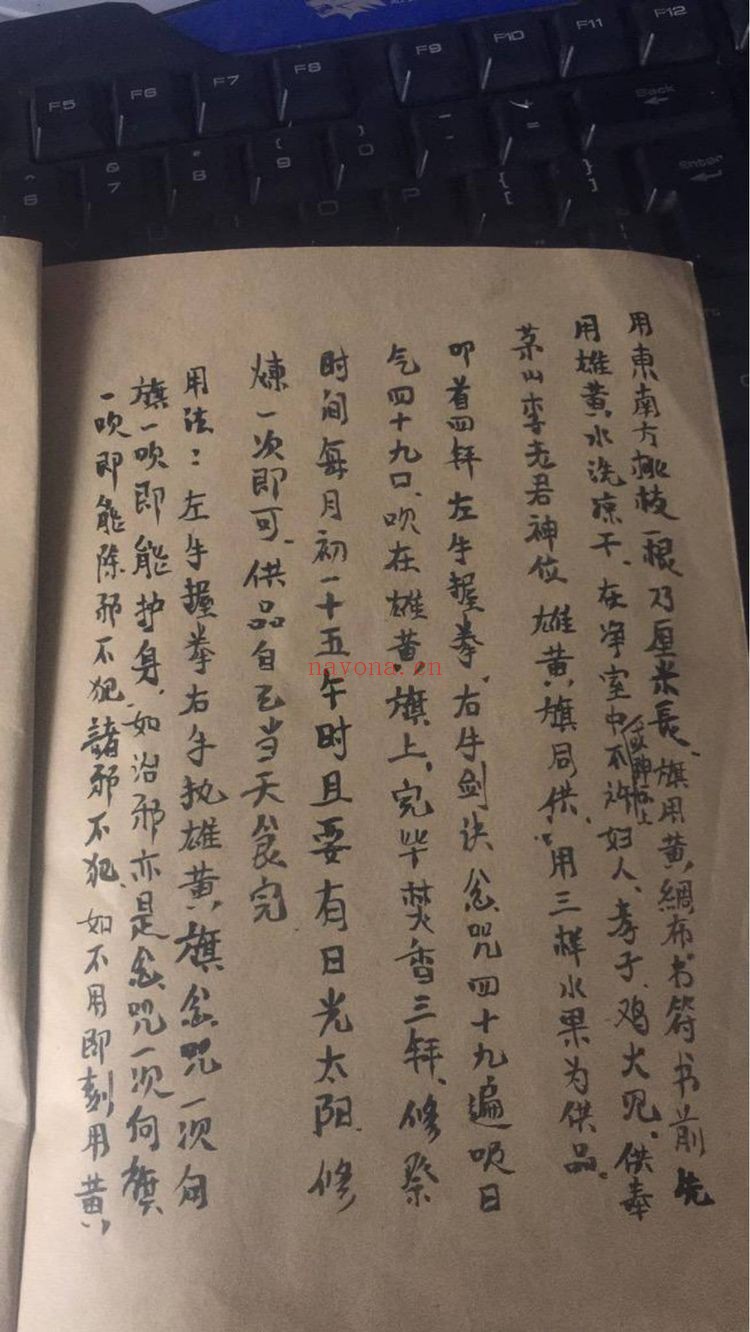 F5 F6 F7 F8 F9 F10 F11 F12
^ 6 & 7 * 8 ( 9 ) 0 - = Back
O P { [ } ] Enter
用東南方桃枝一根乃厘米長、旗用黄綢布书符书前先
用雄黄水洗凉干、在净室中不许妇人、孝子、鸡犬见。供奉
山李老君神位 雄黄旗同供、用三样水果为供品。
叩着四拜左手握拳、右手剑诀念咒四十九遍吸日
气四十九口、吹在雄黄旗上、完毕焚香三拜、修祭
时间每月初一十五午时且要有日光太阳 修
煉一次即可、供品自己当天食完
用法：左手握拳右手执雄黄旗念咒一次向
旗一吹即能护身、如治邪亦是念咒一次向旗
一吹即能除邪不犯諸邪不犯、如不用即刻用黄
nayona.cn